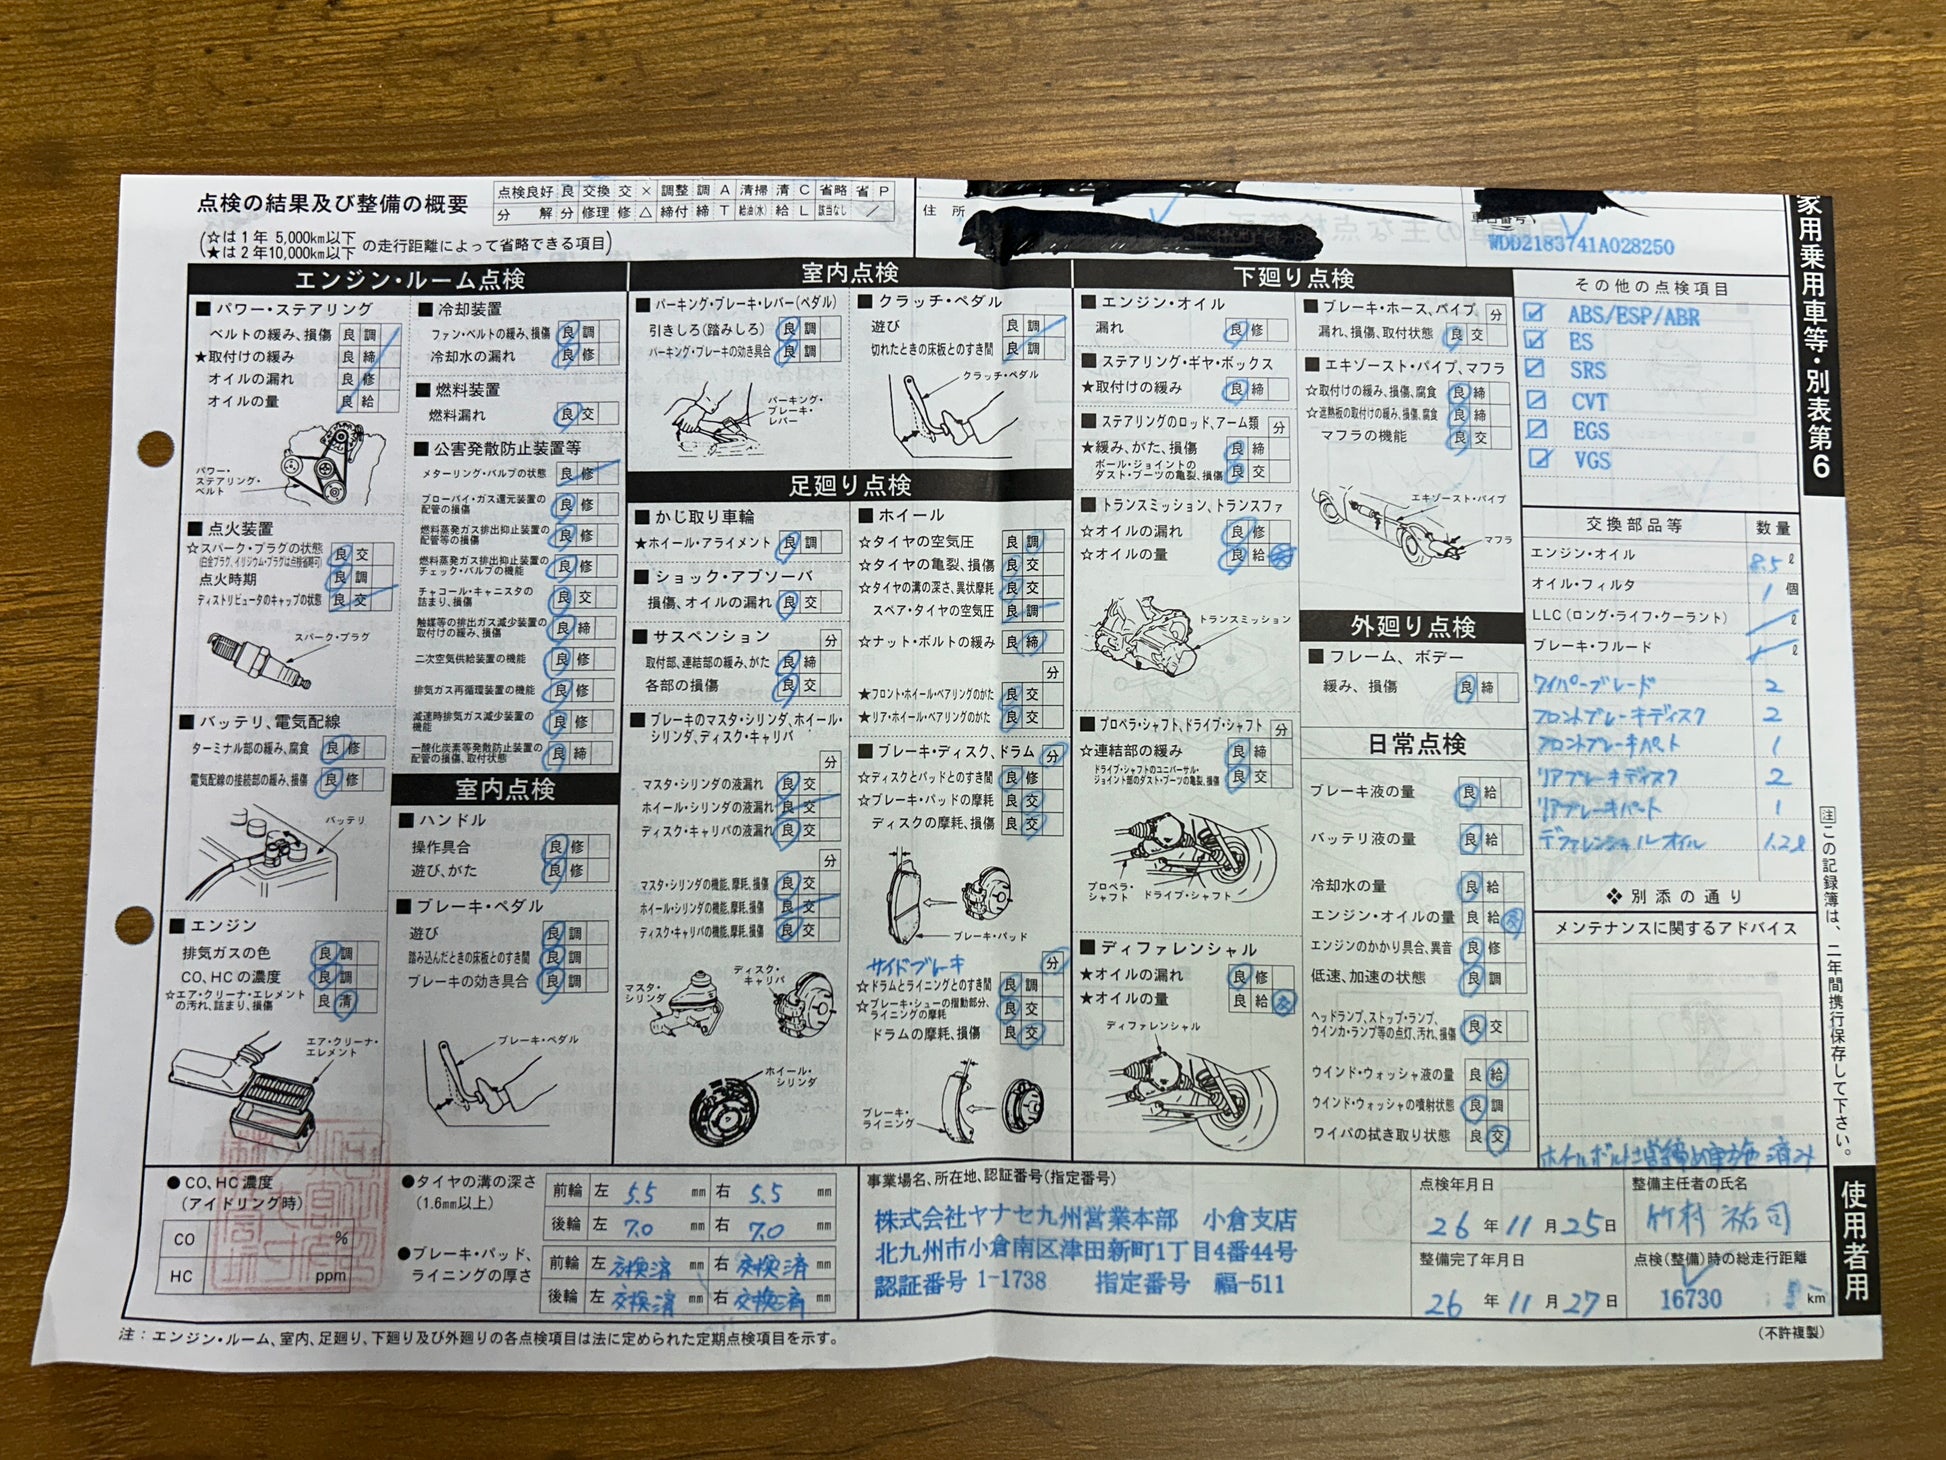 点検の結果及び整備の概要
(☆は1年 5,000km以下
★は2年10,000km以下 の走行距離によって省略できる項目)
点検良好 良 交換 交 × 調整 調 A 清掃 清 C 省略 省 P
分解 分 修理 修 △ 締付 締 T 給油(水) 給 L 該当なし ／
住所
車台番号
WDD2183741A028250
家用乗用車等・別表第6
エンジン・ルーム点検
■ パワー・ステアリング
ベルトの緩み、損傷 良 調
★取付けの緩み 良 締
オイルの漏れ 良 修
オイルの量 良 給
パワー・ステアリング・ベルト
■ 点火装置
☆スパーク・プラグの状態 良 交
点火時期 良 調
ディストリビュータのキャップの状態 良 交
スパーク・プラグ
■ バッテリ、電気配線
ターミナル部の緩み、腐食 良 修
電気配線の接続部の緩み、損傷 良 修
バッテリ
■ エンジン
排気ガスの色 良 調
CO、HCの濃度 良 調
☆エア・クリーナ・エレメントの汚れ、詰まり、損傷 良 清
エア・クリーナ・エレメント
■ 冷却装置
ファン・ベルトの緩み、損傷 良 調
冷却水の漏れ 良 修
■ 燃料装置
燃料漏れ 良 交
■ 公害発散防止装置等
メターリング・バルブの状態 良 修
ブローバイ・ガス還元装置の配管の損傷 良 修
燃料蒸発ガス排出抑止装置の配管等の損傷 良 修
燃料蒸発ガス排出抑止装置のチェック・バルブの機能 良 修
チャコール・キャニスタの詰まり、損傷 良 交
触媒等の排出ガス減少装置の取付けの緩み、損傷 良 締
二次空気供給装置の機能 良 修
排気ガス再循環装置の機能 良 修
減速時排気ガス減少装置の機能 良 修
一酸化炭素等発散防止装置の配管の損傷、取付状態 良 締
室内点検
■ ハンドル
操作具合 良 修
遊び、がた 良 修
■ ブレーキ・ペダル
遊び 良 調
踏み込んだときの床板とのすき間 良 調
ブレーキの効き具合 良 調
ブレーキ・ペダル
室内点検
■ パーキング・ブレーキ・レバー(ペダル)
引きしろ(踏みしろ) 良 調
パーキング・ブレーキの効き具合 良 調
パーキング・ブレーキ・レバー
■ クラッチ・ペダル
遊び 良 調
切れたときの床板とのすき間 良 調
クラッチ・ペダル
足廻り点検
■ かじ取り車輪
★ホイール・アライメント 良 調
■ ショック・アブソーバ
損傷、オイルの漏れ 良 交
■ サスペンション 分
取付部、連結部の緩み、がた 良 締
各部の損傷 良 交
■ ブレーキのマスタ・シリンダ、ホイール・シリンダ、ディスク・キャリパ
分
マスタ・シリンダの液漏れ 良 交
ホイール・シリンダの液漏れ 良 交
ディスク・キャリパの液漏れ 良 交
分
マスタ・シリンダの機能、摩耗、損傷 良 交
ホイール・シリンダの機能、摩耗、損傷 良 交
ディスク・キャリパの機能、摩耗、損傷 良 交
マスタ・シリンダ
ディスク・キャリパ
ホイール・シリンダ
■ ホイール
☆タイヤの空気圧 良 調
☆タイヤの亀裂、損傷 良 交
☆タイヤの溝の深さ、異状摩耗 良 交
スペア・タイヤの空気圧 良 調
☆ナット・ボルトの緩み 良 締
分
★フロント・ホイール・ベアリングのがた 良 交
★リア・ホイール・ベアリングのがた 良 交
■ ブレーキ・ディスク、ドラム 分
☆ディスクとパッドとのすき間 良 修
☆ブレーキ・パッドの摩耗 良 交
ディスクの摩耗、損傷 良 交
ブレーキ・パッド
サイドブレーキ 分
☆ドラムとライニングとのすき間 良 調
☆ブレーキ・シューの摺動部分、ライニングの摩耗 良 交
ドラムの摩耗、損傷 良 交
ブレーキ・ライニング
下廻り点検
■ エンジン・オイル
漏れ 良 修
■ ステアリング・ギヤ・ボックス
★取付けの緩み 良 締
■ ステアリングのロッド、アーム類 分
★緩み、がた、損傷 良 締
ボール・ジョイントのダスト・ブーツの亀裂、損傷 良 交
■ トランスミッション、トランスファ
☆オイルの漏れ 良 修
☆オイルの量 良 給
トランスミッション
■ プロペラ・シャフト、ドライブ・シャフト 分
☆連結部の緩み 良 締
ドライブ・シャフトのユニバーサル・ジョイント部のダスト・ブーツの亀裂、損傷 良 交
プロペラ・シャフト ドライブ・シャフト
■ ディファレンシャル
★オイルの漏れ 良 修
★オイルの量 良 給 交
ディファレンシャル
■ ブレーキ・ホース、パイプ 分
漏れ、損傷、取付状態 良 交
■ エキゾースト・パイプ、マフラ
☆取付けの緩み、損傷、腐食 良 締
☆遮熱板の取付けの緩み、損傷、腐食 良 締
マフラの機能 良 交
エキゾースト・パイプ
マフラ
外廻り点検
■ フレーム、ボデー
緩み、損傷 良 締
日常点検
ブレーキ液の量 良 給
バッテリ液の量 良 給
冷却水の量 良 給
エンジン・オイルの量 良 給 交
エンジンのかかり具合、異音 良 修
低速、加速の状態 良 調
ヘッドランプ、ストップ・ランプ、ウインカ・ランプ等の点灯、汚れ、損傷 良 交
ウインド・ウォッシャ液の量 良 給
ウインド・ウォッシャの噴射状態 良 調
ワイパの拭き取り状態 良 交
その他の点検項目
☑ ABS/ESP/ABR
☑ ES
☑ SRS
☑ CVT
☑ EGS
☑ VGS
交換部品等 数量
エンジン・オイル 8.5 ℓ
オイル・フィルタ 1 個
LLC(ロング・ライフ・クーラント) ℓ
ブレーキ・フルード ℓ
ワイパーブレード 2
フロントブレーキディスク 2
フロントブレーキパット 1
リアブレーキディスク 2
リアブレーキパート 1
デファレンシャルオイル 1.2ℓ
❖ 別添の通り
メンテナンスに関するアドバイス
ホイールボルト増締め実施済み
注 この記録簿は、二年間携行保存して下さい。
使用者用
● CO、HC濃度
(アイドリング時)
CO %
HC ppm
●タイヤの溝の深さ
(1.6mm以上)
前輪 左 5.5 mm 右 5.5 mm
後輪 左 7.0 mm 右 7.0 mm
●ブレーキ・パッド、ライニングの厚さ
前輪 左 交換済 mm 右 交換済 mm
後輪 左 交換済 mm 右 交換済 mm
事業場名、所在地、認証番号(指定番号)
株式会社ヤナセ九州営業本部 小倉支店
北九州市小倉南区津田新町1丁目4番44号
認証番号 1-1738 指定番号 福-511
点検年月日
26 年 11 月 25 日
整備完了年月日
26 年 11 月 27 日
整備主任者の氏名
竹村 祐司
点検(整備)時の総走行距離
16730 km
注：エンジン・ルーム、室内、足廻り、下廻り及び外廻りの各点検項目は法に定められた定期点検項目を示す。
(不許複製)